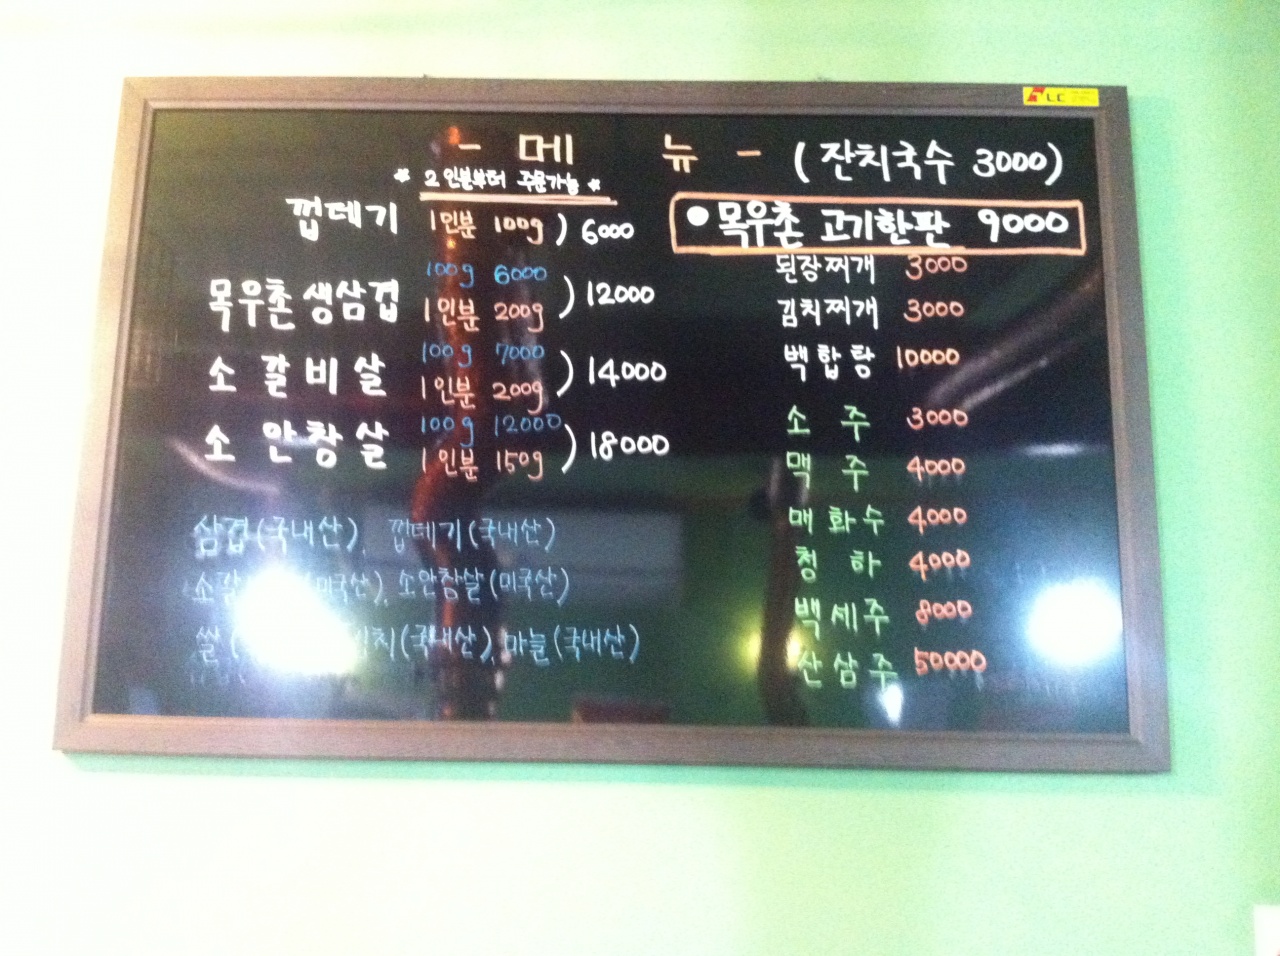 - 메 뉴 - (잔치국수 3000)
* 2인분부터 주문가능 *
껍데기 1인분 100g ) 6000
목우촌 생삼겹 100g 6000
1인분 200g ) 12000
소 갈비살 100g 7000
1인분 200g ) 14000
소 안창살 100g 12000
1인분 150g ) 18000
삼겹(국내산), 껍데기(국내산)
소갈 (미국산), 소안창살(미국산)
쌀( 김치(국내산), 마늘(국내산)
● 목우촌 고기한판 9000
된장찌개 3000
김치찌개 3000
백합탕 10000
소주 3000
맥주 4000
매화수 4000
청하 4000
백세주 8000
산삼주 50000
LC